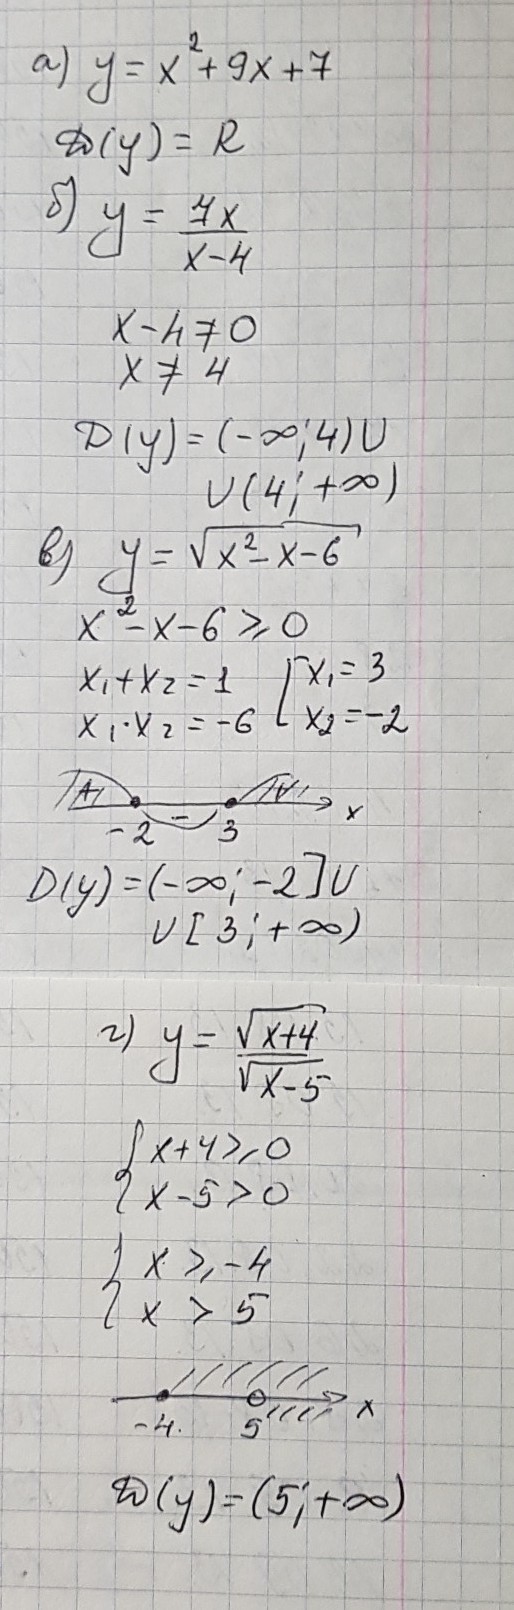 а) y = x² + 9x + 7
D(y) = R
б) y = 7x / x - 4
x - 4 ≠ 0
x ≠ 4
D(y) = (-∞; 4) ∪
∪ (4; +∞)
в) y = √(x² - x - 6)
x² - x - 6 ⩾ 0
x₁ + x₂ = 1 [ x₁ = 3
x₁ · x₂ = -6 [ x₂ = -2
+ - +
-2 3 x
D(y) = (-∞; -2] ∪
∪ [3; +∞)
г) y = √(x+4) / √(x-5)
{ x + 4 ⩾ 0
{ x - 5 > 0
{ x ⩾ -4
{ x > 5
-4 5 x
D(y) = (5; +∞)